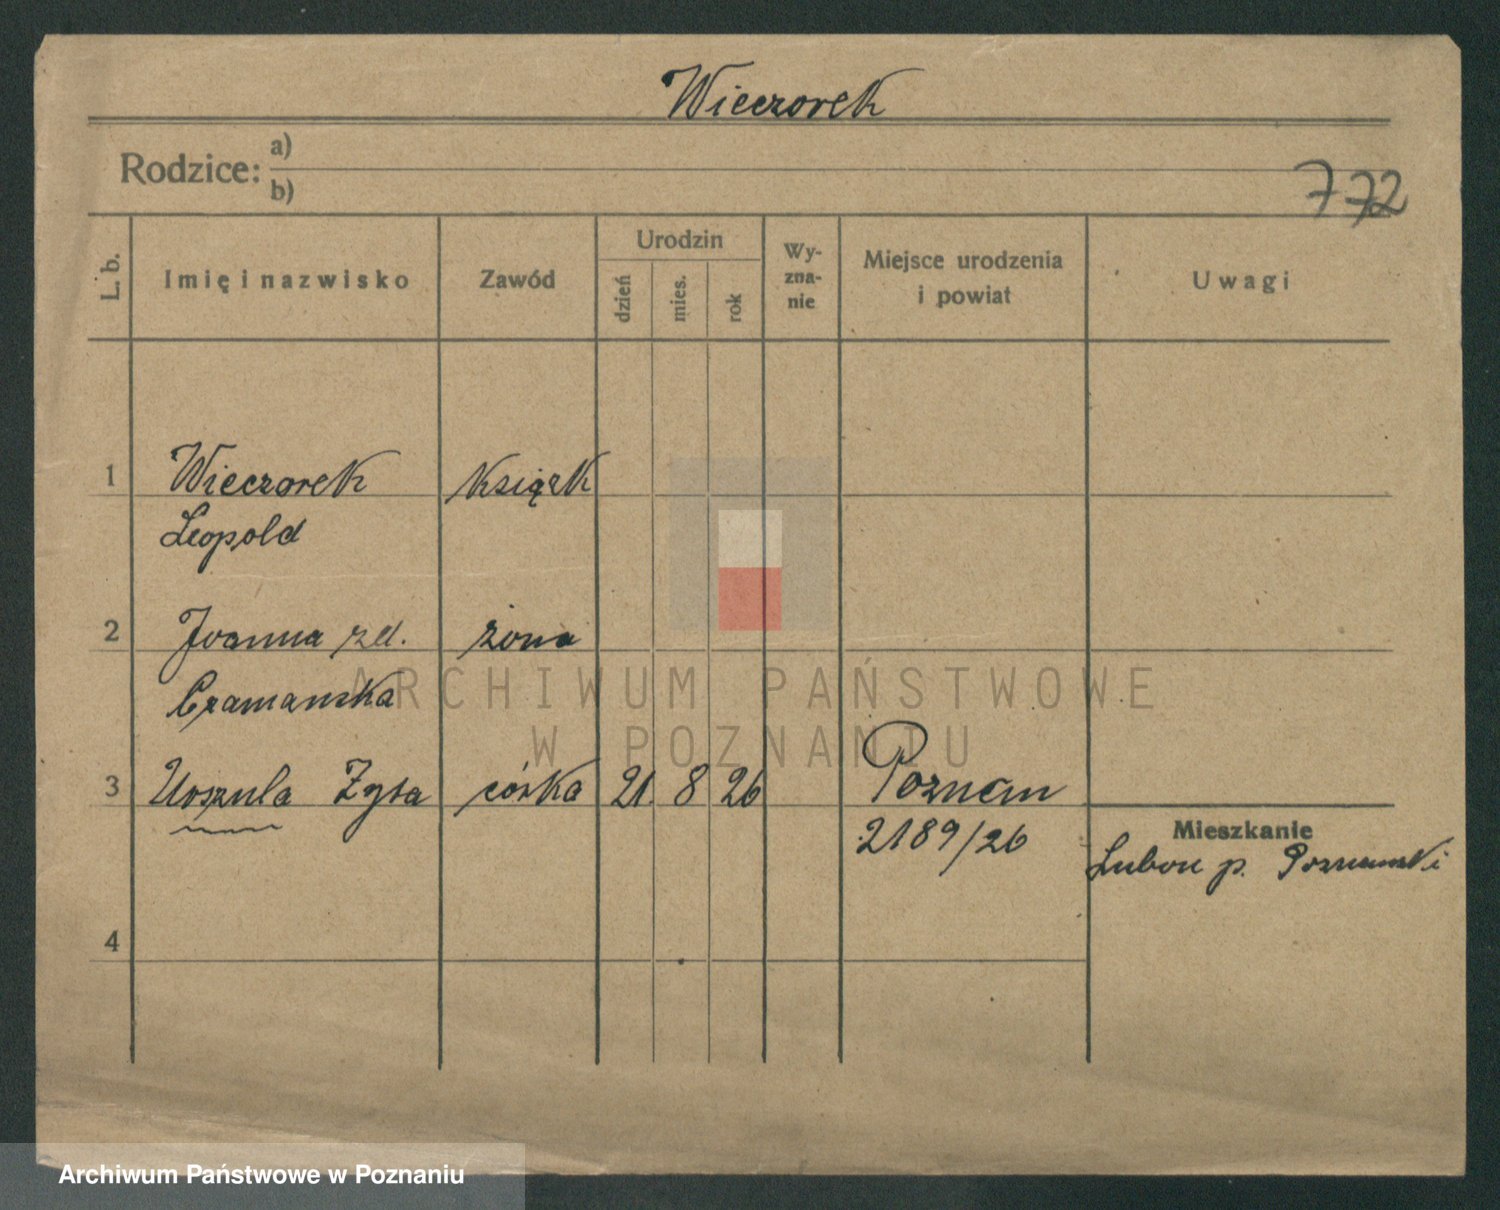 Wieczorek
Rodzice: a)
b)
772
L. b.
Imię i nazwisko
Zawód
Urodzin
dzień
mies.
rok
Wy-
zna-
nie
Miejsce urodzenia
i powiat
Uwagi
1 Wieczorek
Leopold
2 Joanna zd. żona
3 Urszula Zyta córka 21. 8 26 Poznań
2189/26
Mieszkanie
Luboń p.
4
ARCHIWUM PAŃSTWOWE
W POZNANIU
Archiwum Państwowe w Poznaniu